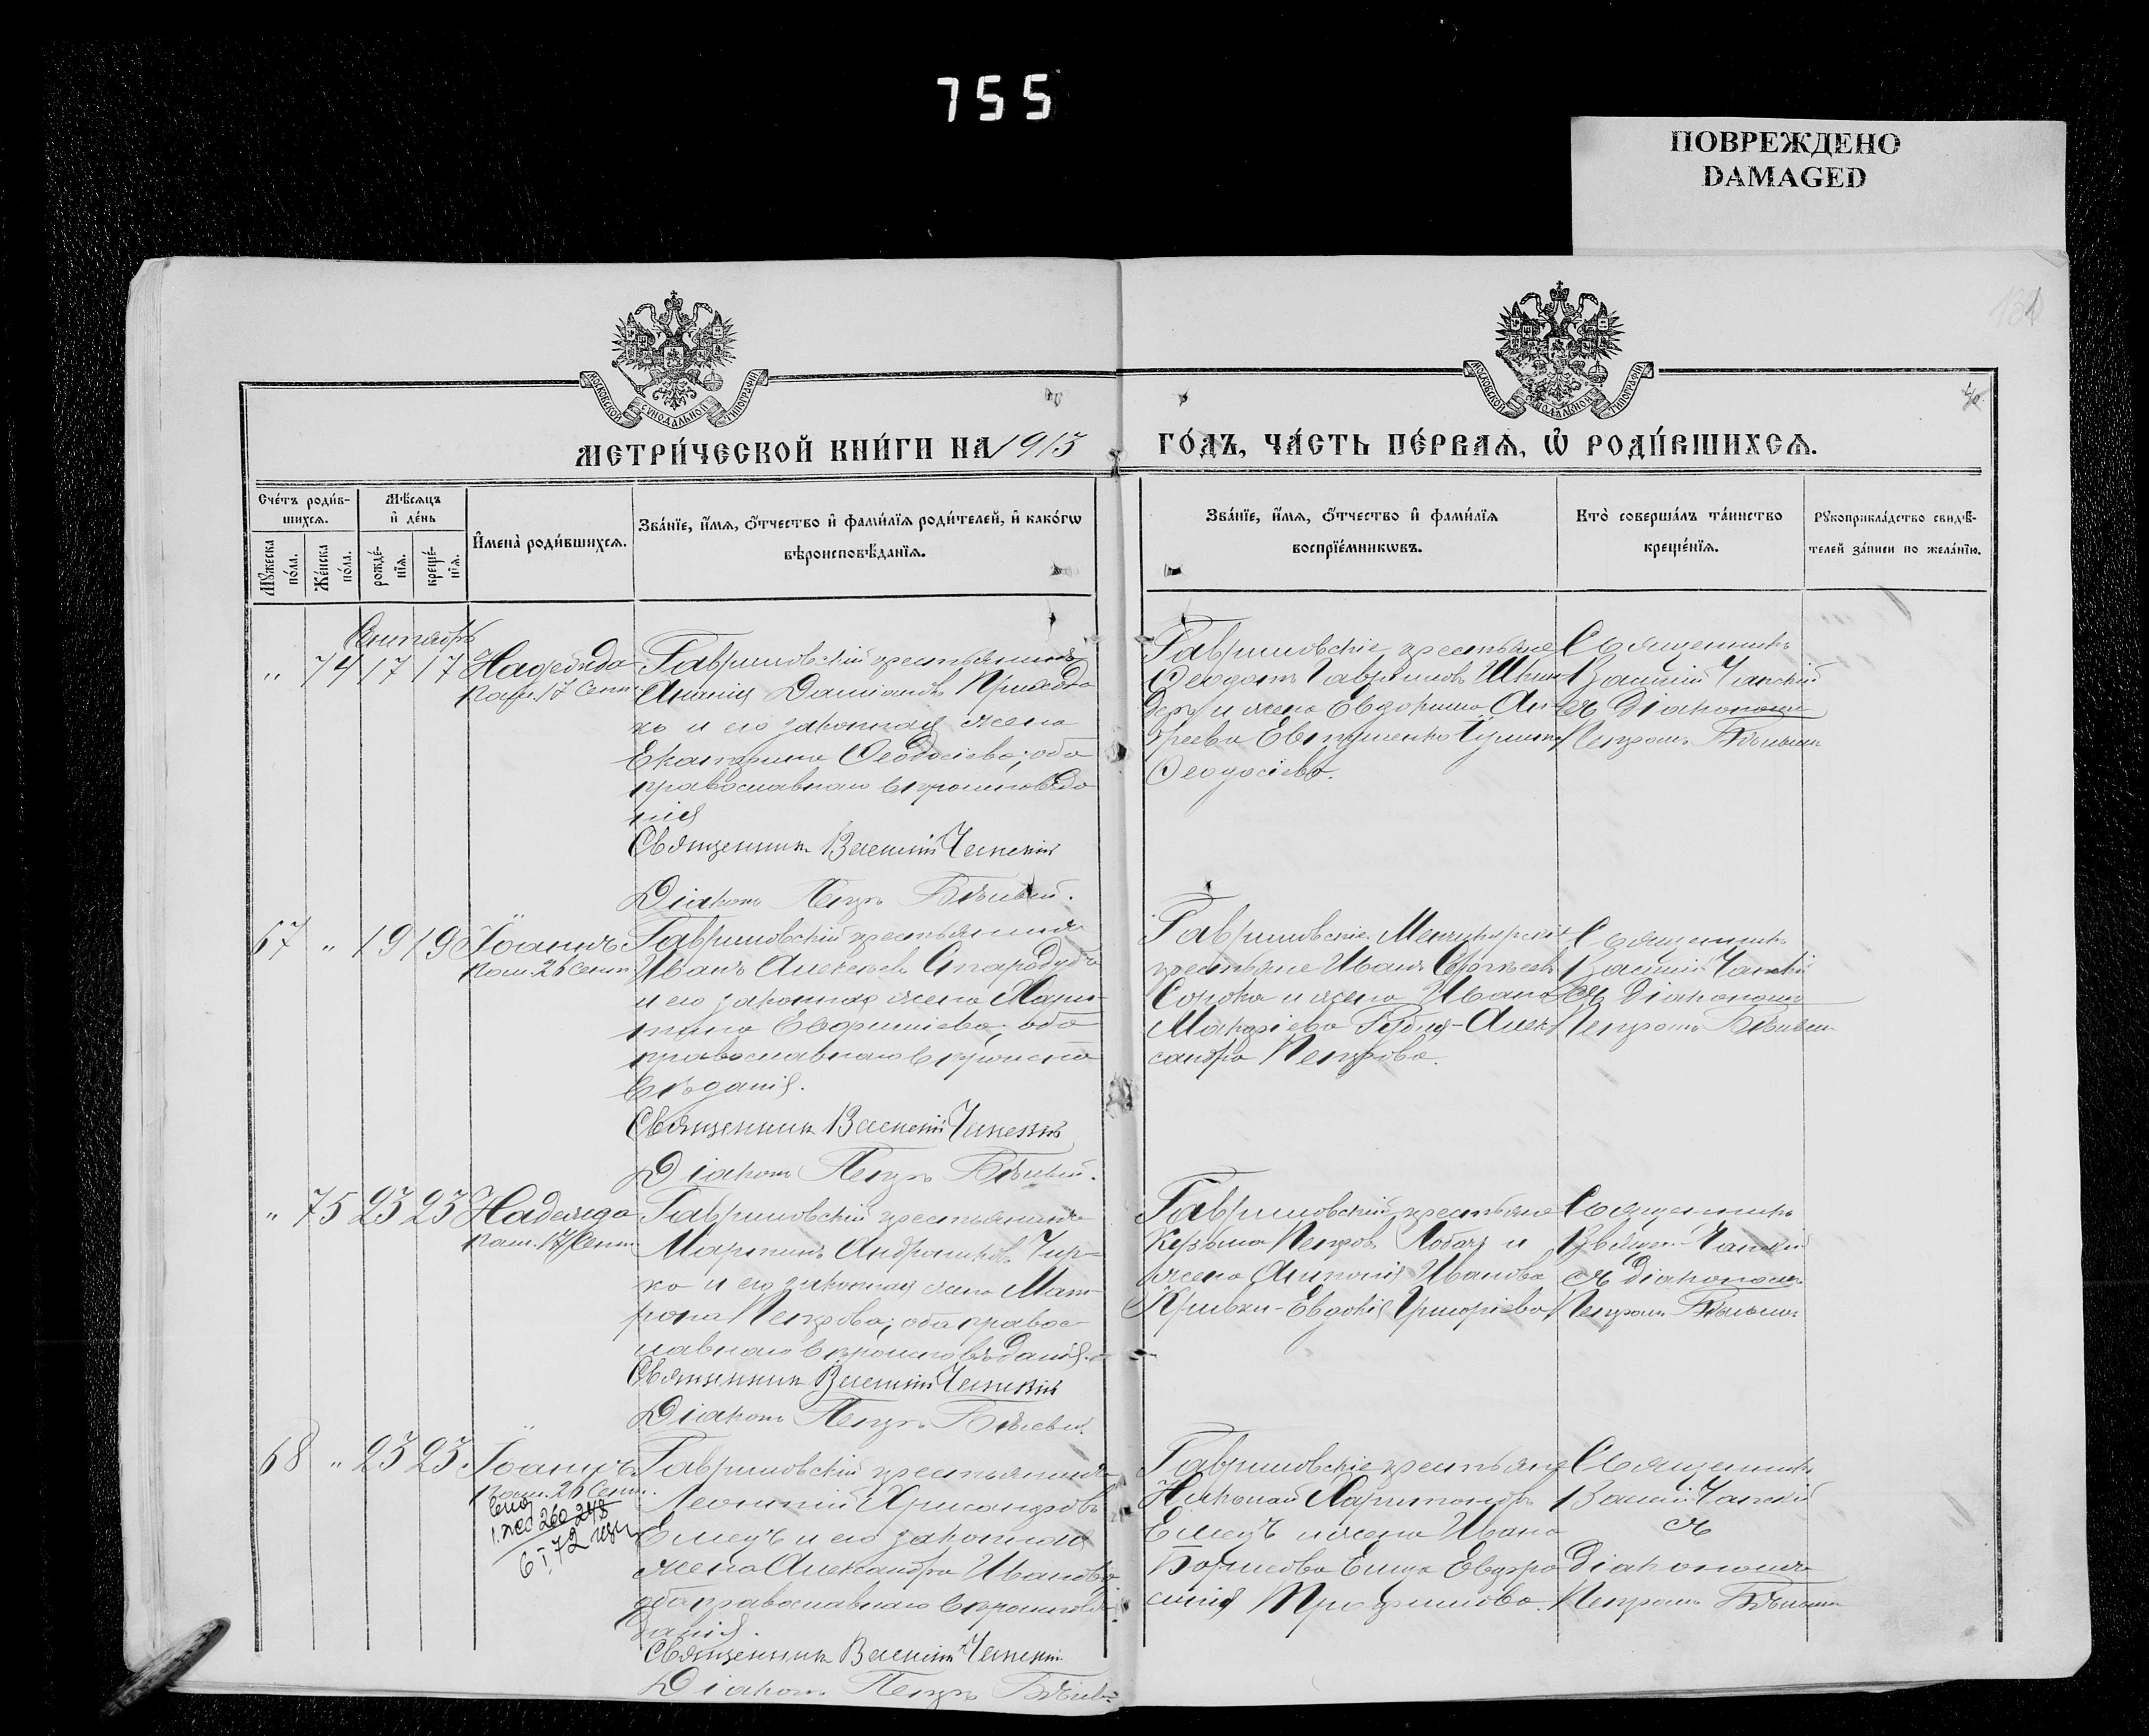 755
ПОВРЕЖДЕНО
DAMAGED
МОСКОВСКОЙ СѴНОДАЛЬНОЙ ТИПОГРАФІИ
МОСКОВСКОЙ СѴНОДАЛЬНОЙ ТИПОГРАФІИ
МЕТРИ́ЧЕСКОЙ КНИ́ГИ НА 1913 ГО́ДЪ, ЧА́СТЬ ПЕ́РВАѦ, Ѡ҆ РОДИ́ВШИХСѦ.
Сче́тъ роди́в-
шихсѧ.
Мꙋжеска по́ла.
Же́нска по́ла.
Мѣ́сѧцъ
и҆ де́нь
рожде́-
нїѧ.
креще́-
нїѧ.
И҆мена̀ роди́вшихсѧ.
Зва́нїе, и҆́мѧ, ѻ҆́тчество и҆ фами́лїѧ роди́телей, и҆ како́гѡ
вѣроисповѣ́данїѧ.
Зва́нїе, и҆́мѧ, ѻ҆́тчество и҆ фами́лїѧ
воспрїе́мникѡвъ.
Кто̀ соверша́лъ та́инство
креще́нїѧ.
Рꙋкоприкла́дство свидѣ́-
телей за́писи по жела́нїю.
Сентябрь
" 74 17 17 Надежда
пам. 17 Сент.
Гавриловскій крестьянинъ
Ананія Даміановъ Приходь
ко и его законная жена
Екатерина Ѳеодосіева; оба
православнаго вѣроисповѣда
нія
Священникъ Василій Чапскій
Діаконъ Петръ Бѣлый.
Гавриловскіе крестьяне
Ѳеодотъ Гавриловъ
и жена
Ѳеодосіева.
Священникъ
Василій Чапскій
съ діакономъ
Петромъ Бѣлымъ
67 " 19 19 Іоаннъ
пам. 26 Сент.
Гавриловскій крестьянинъ
Иванъ Алексѣевъ Стародубъ
и его законная жена Хари-
тина Евфиміева; оба
православнаго вѣроиспо
вѣданія.
Священникъ Василій Чапскій
Діаконъ Петръ Бѣлый.
крестьяне Иванъ
Сорока и жена Ивана
Рубця - Алек
сандра Петрова.
Священникъ
Василій Чапскій
съ діакономъ
Петромъ Бѣлымъ
" 75 23 23 Надежда
пам. 17 Сент.
Гавриловскій крестьянинъ
Мартинъ Андрониковъ Чир-
ко и его законная жена Мат
рона Петрова; оба правос-
лавнаго вѣроисповѣданія.
Священникъ Василій Чапскій
Діаконъ Петръ Бѣлый.
Гавриловскій крестьяне
Кузьма Петровъ Лобачъ и
жена Антонія Иванова
Кривки - Евдокія Григоріева
Священникъ
Василій Чапскій
съ діакономъ
Петромъ Бѣлымъ
68 " 23 23 Іоаннъ
пам. 26 Сент.
260 248
6 I 72
Гавриловскій крестьянинъ
Леонтій Хрисанфовъ
Емецъ и его законная
жена Александра Иванова
оба православнаго вѣроисповѣ
данія.
Священникъ Василій Чапскій
Діаконъ Петръ Бѣлый
Гавриловскіе крестьяне
Николай Харитоновъ
Емецъ и жена Ивана
Борисова Емца Евфро
синія Трофимова.
Священникъ
Василій Чапскій
съ
діакономъ
Петромъ Бѣлымъ